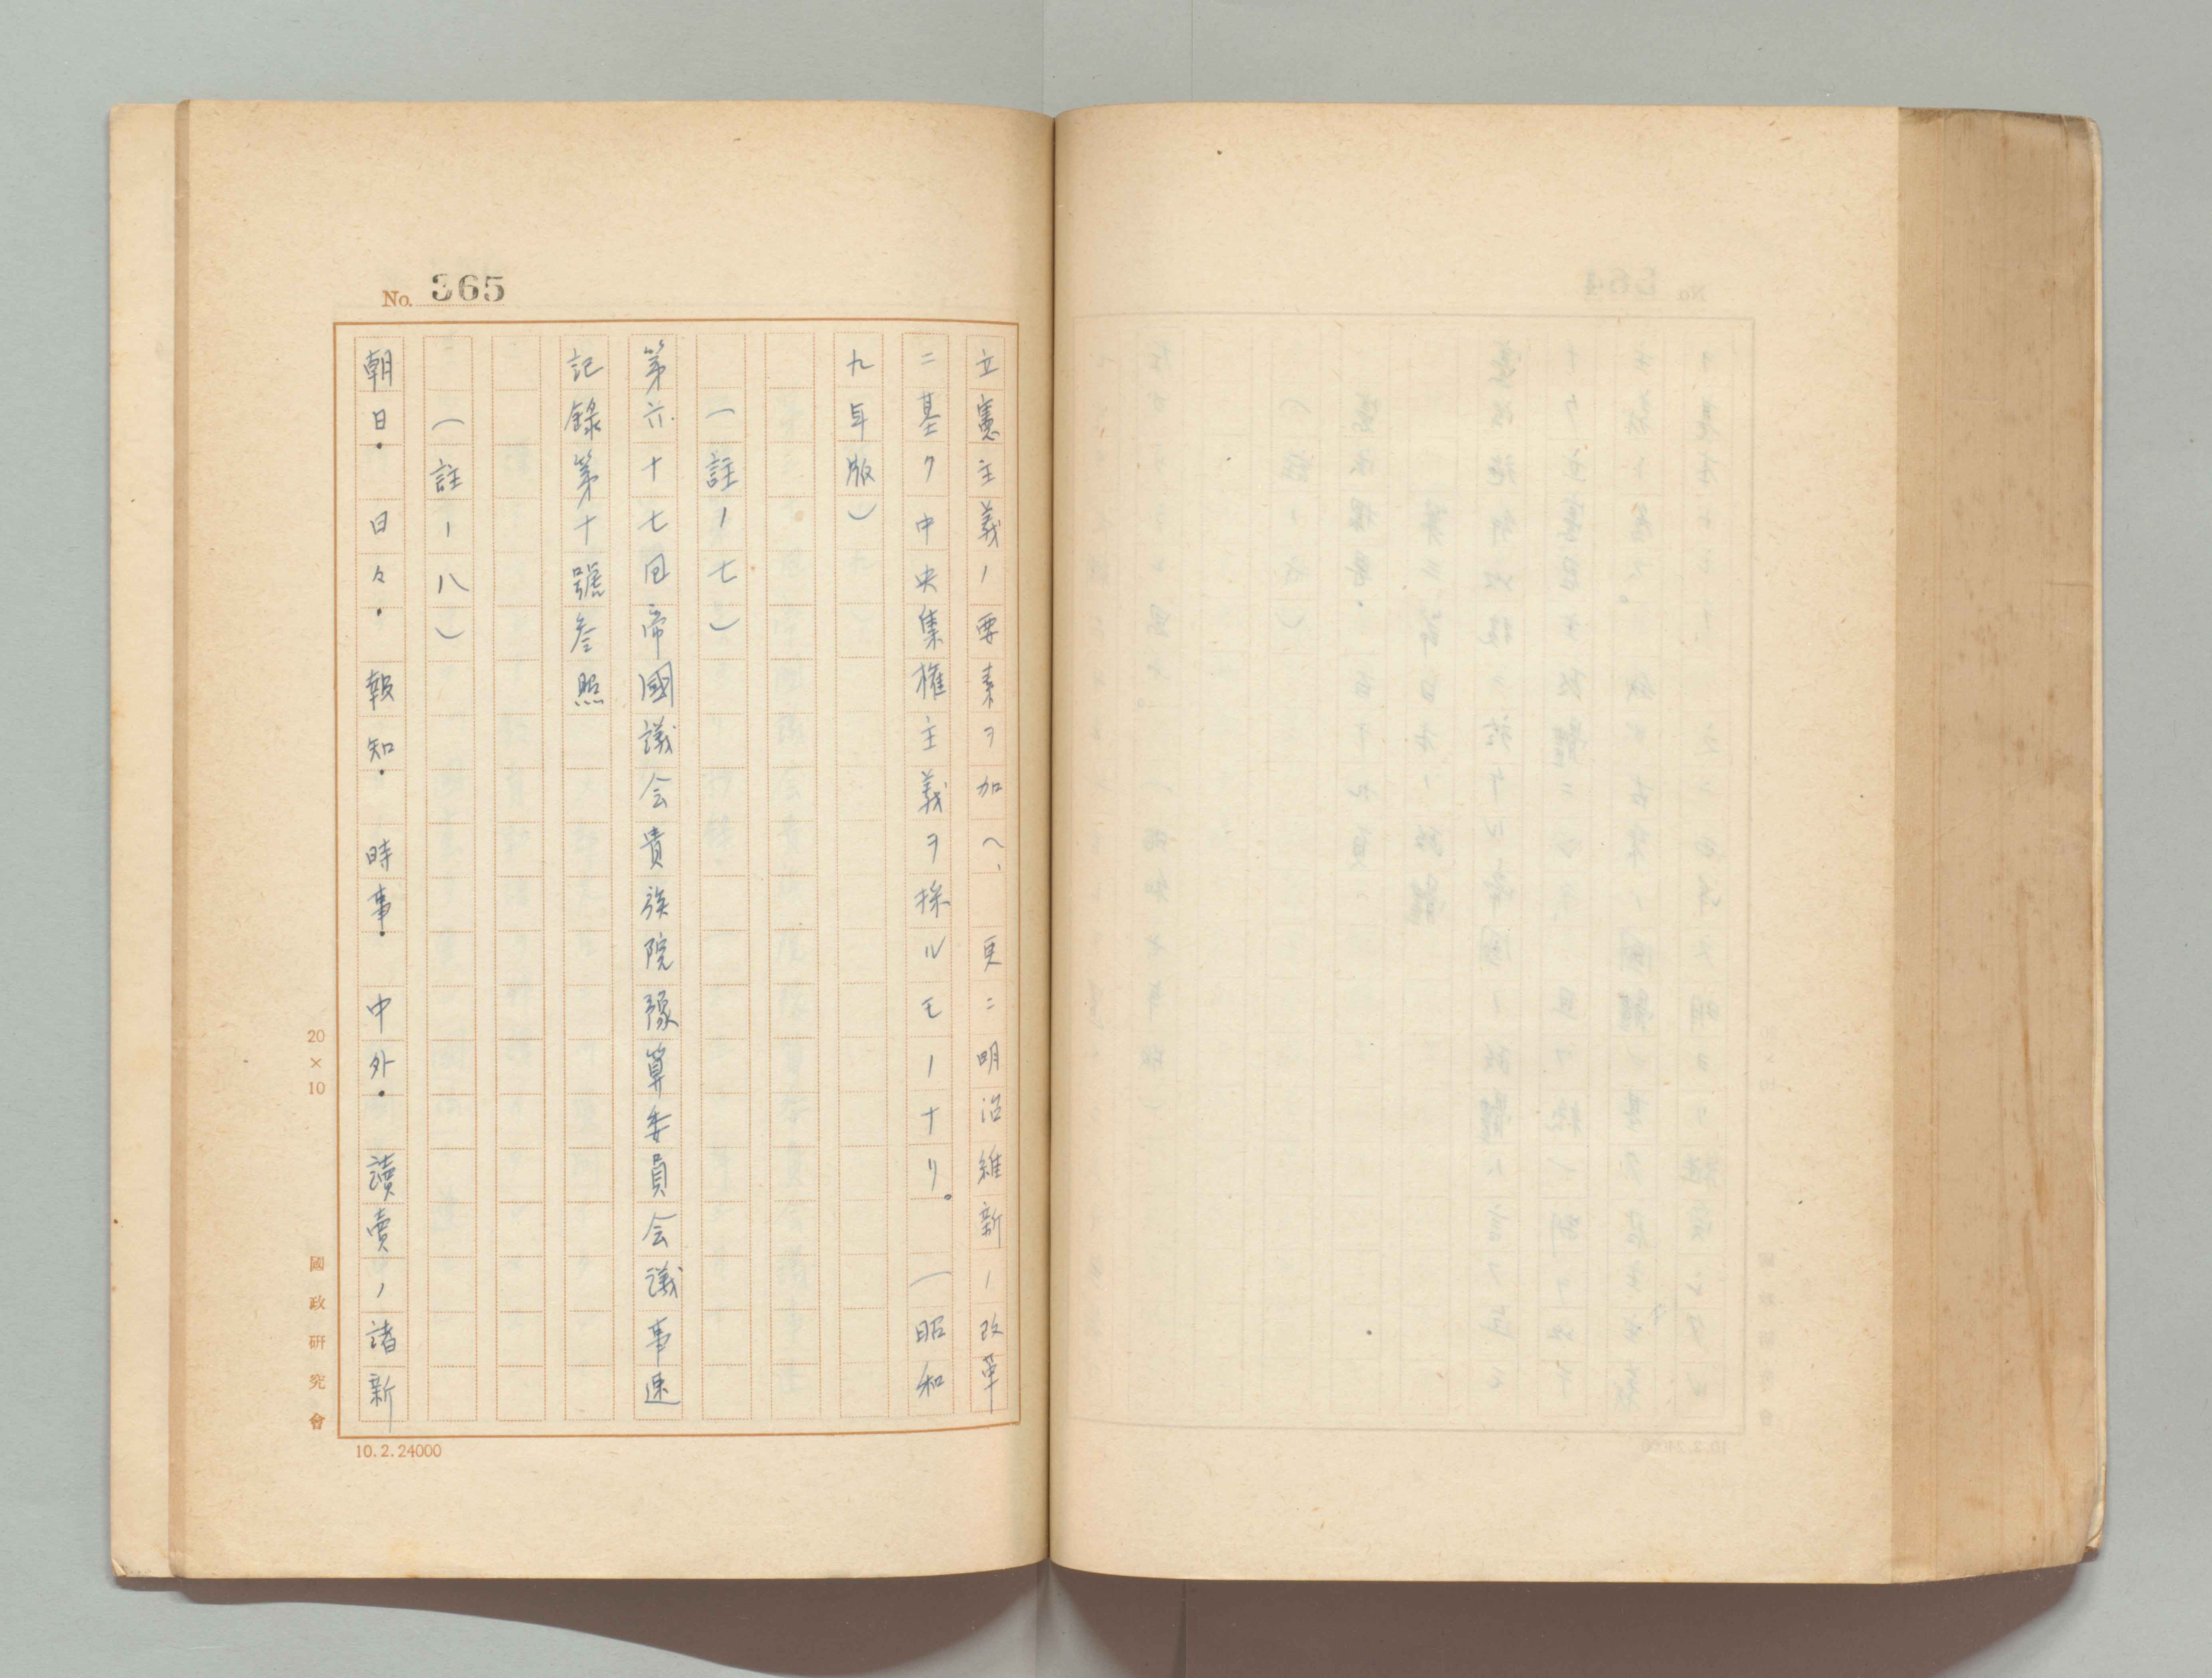 No. 365
立憲主義ノ要素ヲ加ヘ、更ニ明治維新ノ改革
ニ基ク中央集権主義ヲ採ルモノナリ。（昭和
九年版）
（註ノ七）
第六十七回帝國議会貴族院豫算委員会議事速
記録第十號参照
（註ノ八）
朝日・日々・報知・時事・中外・讀賣ノ諸新
20×10
國政研究會
10.2.24000